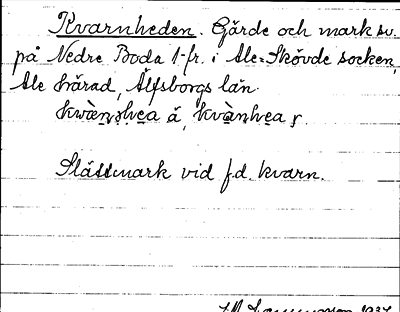 Kvarnheden. Gärde och mark sv.
på Nedre Boda 1-fr. i Ale-Skövde socken,
Ale härad, Älfsborgs län.
kwàn̥hea å, kvànhea f.
Slättmark vid f.d. kvarn.
1937